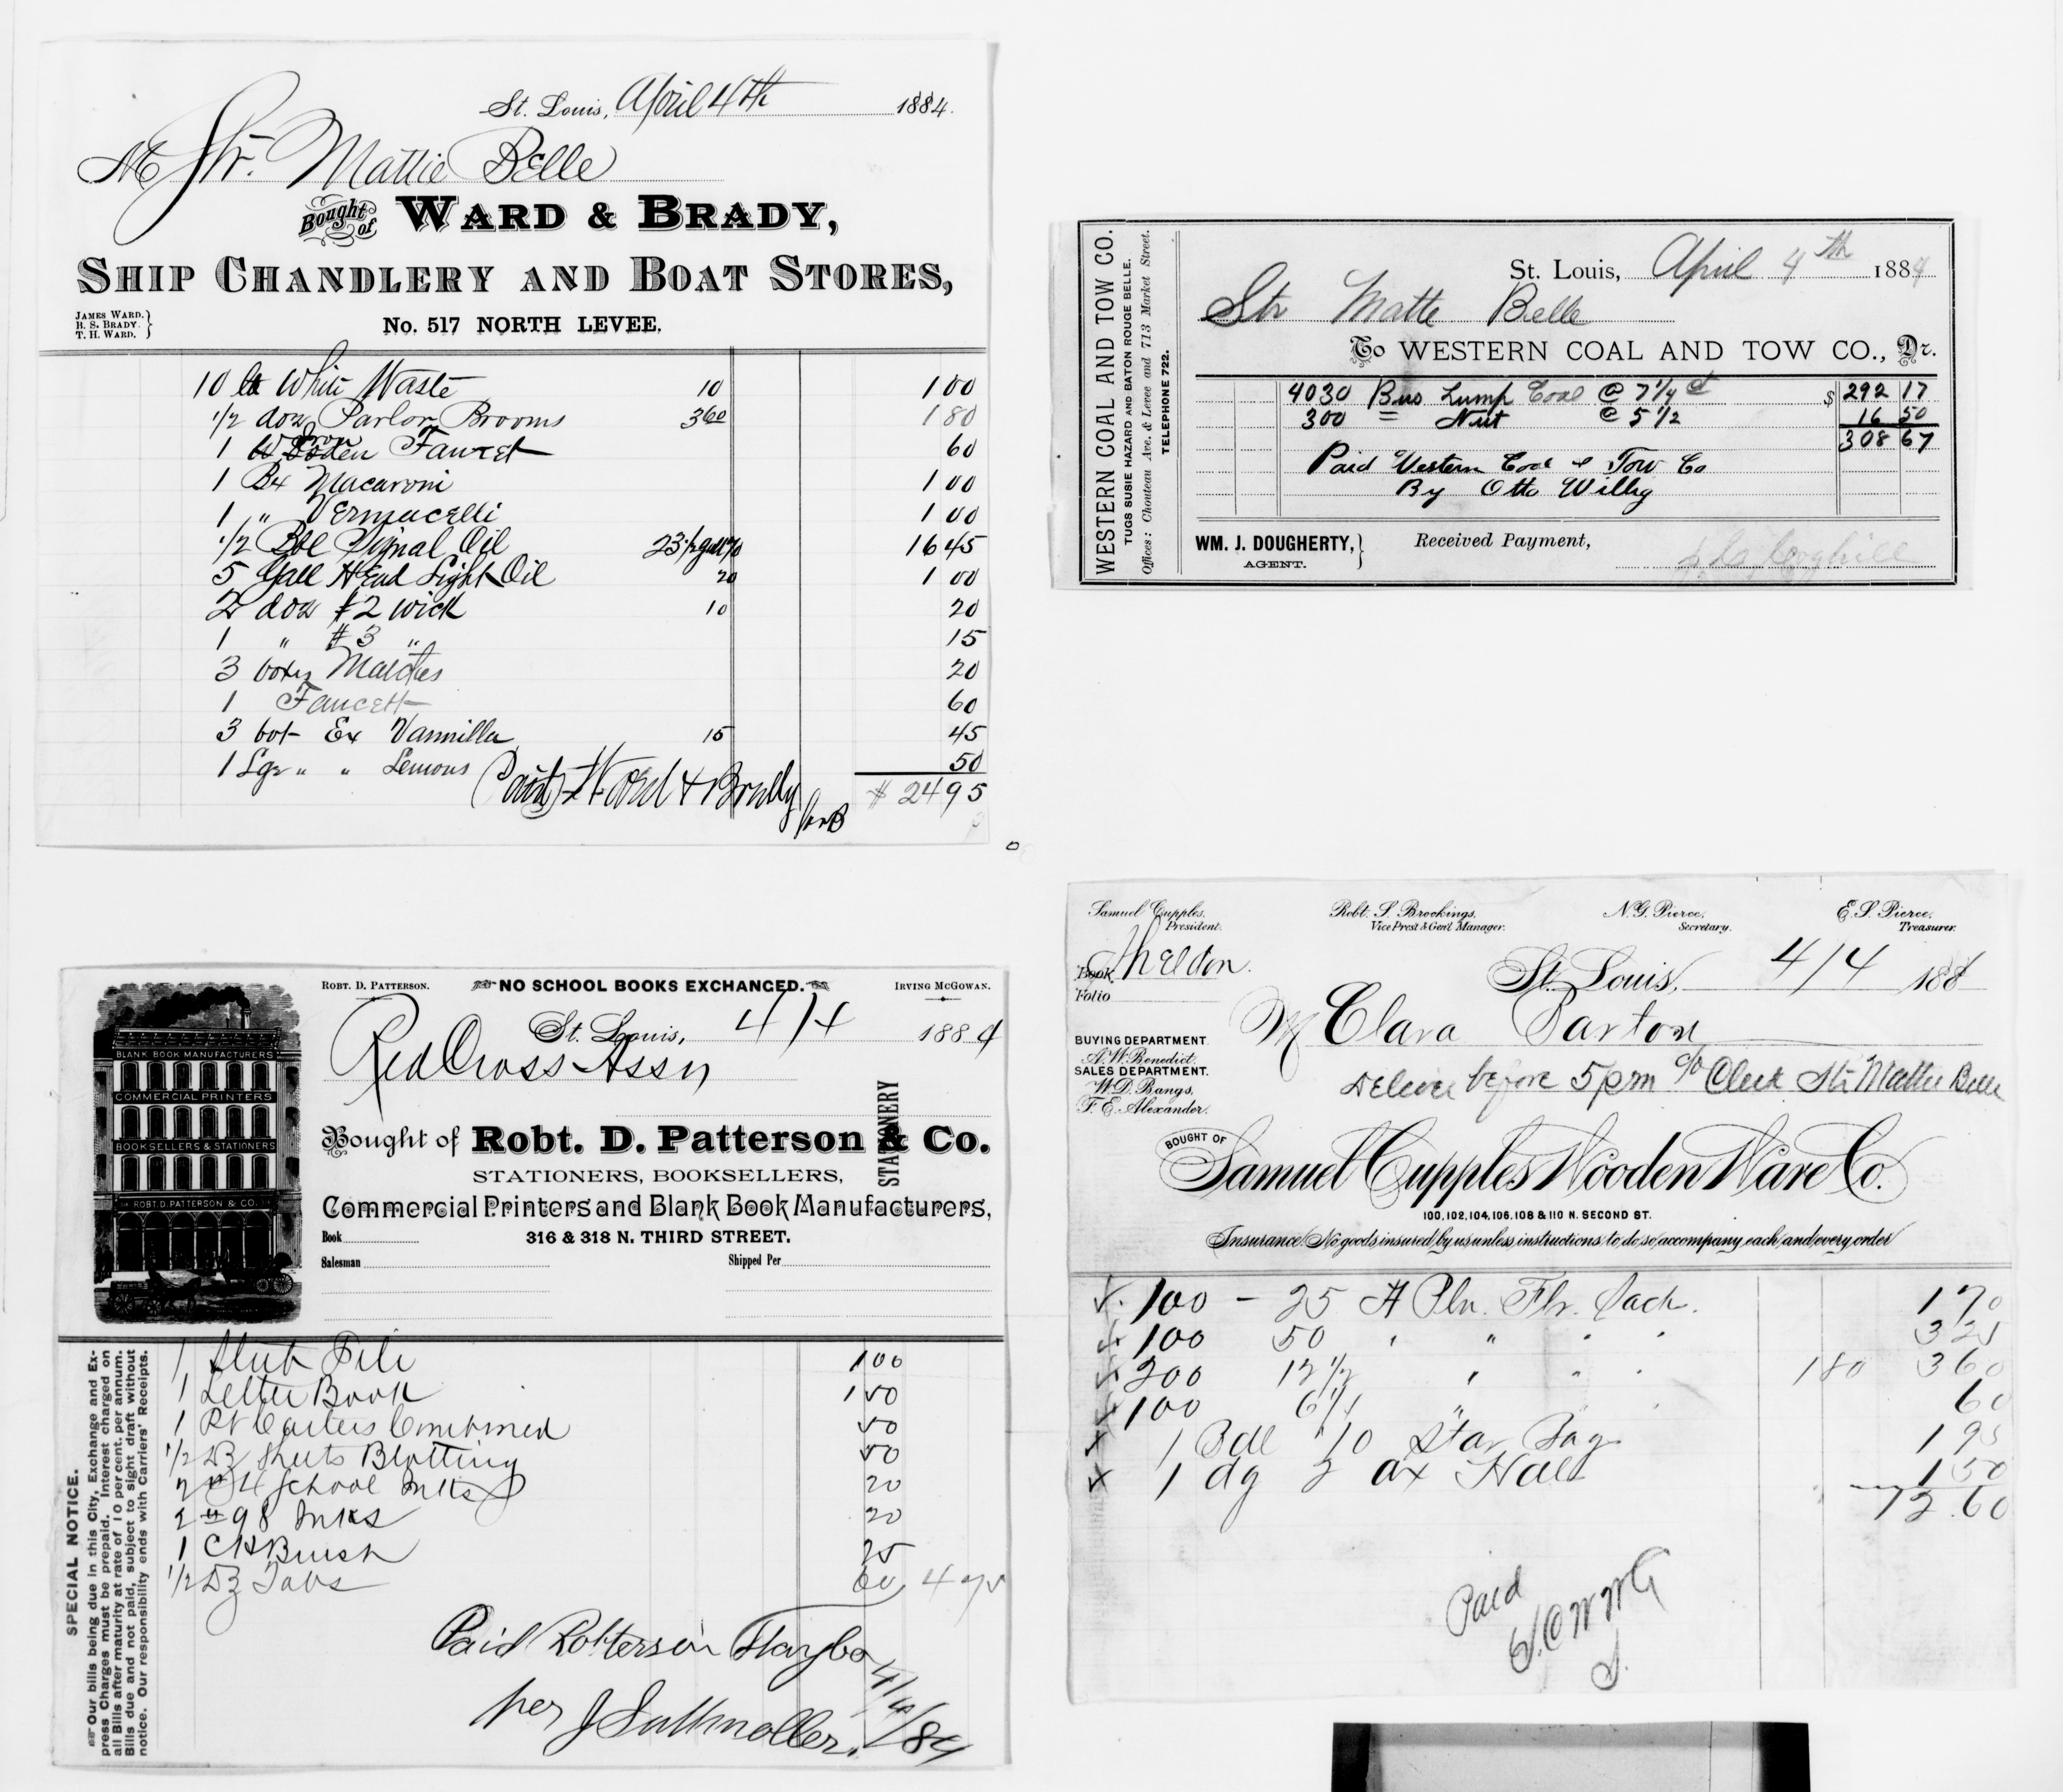 St. Louis, April 4th 1884.
M Str. Mattie Belle
Bought of WARD & BRADY,
SHIP CHANDLERY AND BOAT STORES,
JAMES WARD.
B. S. BRADY.
T. H. WARD.
No. 517 NORTH LEVEE.
10 lb White Waste 10 1 00
1/2 doz Parlor Brooms 360 1 80
1 Iron Faucet 60
1 Bx Macaroni 1 00
1 " Vermacelli 1 00
1/2 Bbl Signal Oil 23 1/2 gall 70 16 45
5 Gall Head Light Oil 20 1 00
2 doz #2 wick 10 20
1 " #3 " 15
3 boxes Matches 20
1 Faucett 60
3 bot Ex Vannilla 15 45
1 Lge " " Lemons 50
Paid Ward & Brady $ 24 95
WESTERN COAL AND TOW CO.
TUGS SUSIE HAZARD AND BATON ROUGE BELLE.
Offices: Chouteau Ave. & Levee and 713 Market Street.
TELEPHONE 722.
St. Louis, April 4th 1884
Str Matte Belle
To WESTERN COAL AND TOW CO., Dr.
4030 Bus Lump Coal @ 7 1/4 ¢ $ 292 17
300 = Nut @ 5 1/2 16 50
308 67
Paid Western Coal & Tow Co
By Otto Willig
WM. J. DOUGHERTY,
AGENT.
Received Payment,
ROBT. D. PATTERSON.
NO SCHOOL BOOKS EXCHANGED.
IRVING MCGOWAN.
St. Louis, 4/4 1884
Red Cross Assn
STATIONERY
Bought of Robt. D. Patterson & Co.
STATIONERS, BOOKSELLERS,
Commercial Printers and Blank Book Manufacturers,
Book
316 & 318 N. THIRD STREET.
Salesman
Shipped Per
BLANK BOOK MANUFACTURERS
COMMERCIAL PRINTERS
BOOKSELLERS & STATIONERS
ROBT. D. PATTERSON & CO.
SPECIAL NOTICE.
Our bills being due in this City, Exchange and Ex-
press Charges must be prepaid. Interest charged on
all Bills after maturity at rate of 10 per cent. per annum.
Bills due and not paid, subject to sight draft without
notice. Our responsibility ends with Carriers' Receipts.
1 File 1 00
1 Letter Book 1 50
1 Carters Combined 50
1/2 Dz Sheets Blotting 50
2 #4 School Inks 20
2 " 98 Inks 20
1 Brush 25
1/2 Dz Tabs 60 4 75
Paid Patterson
per J
4/4/84
Samuel Cupples,
President.
Robt. S. Brookings,
Vice Prest & Genl. Manager.
N. G. Pierce,
Secretary.
E. S. Pierce,
Treasurer.
Book Sheldon
Folio
St. Louis, 4/4 188
M Clara Barton
BUYING DEPARTMENT
A. W. Benedict.
SALES DEPARTMENT.
W. D. Bangs,
F. E. Alexander.
Deliver before 5 pm c/o Clerk Str Mattie Belle
BOUGHT OF
Samuel Cupples Wooden Ware Co.
100, 102, 104, 106, 108 & 110 N. SECOND ST.
Insurance. No goods insured by us unless instructions to do so accompany each and every order
100 - 25 # Pln. Flr. Sack. 1 70
100 50 " " " " 3 25
200 12 1/2 " " " 180 3 60
100 6 1/4 " " " 60
1 Bdl 10 Star Bag 1 95
1 2 ax 1 50
12.60
Paid
S.C.W.W.Co
S.